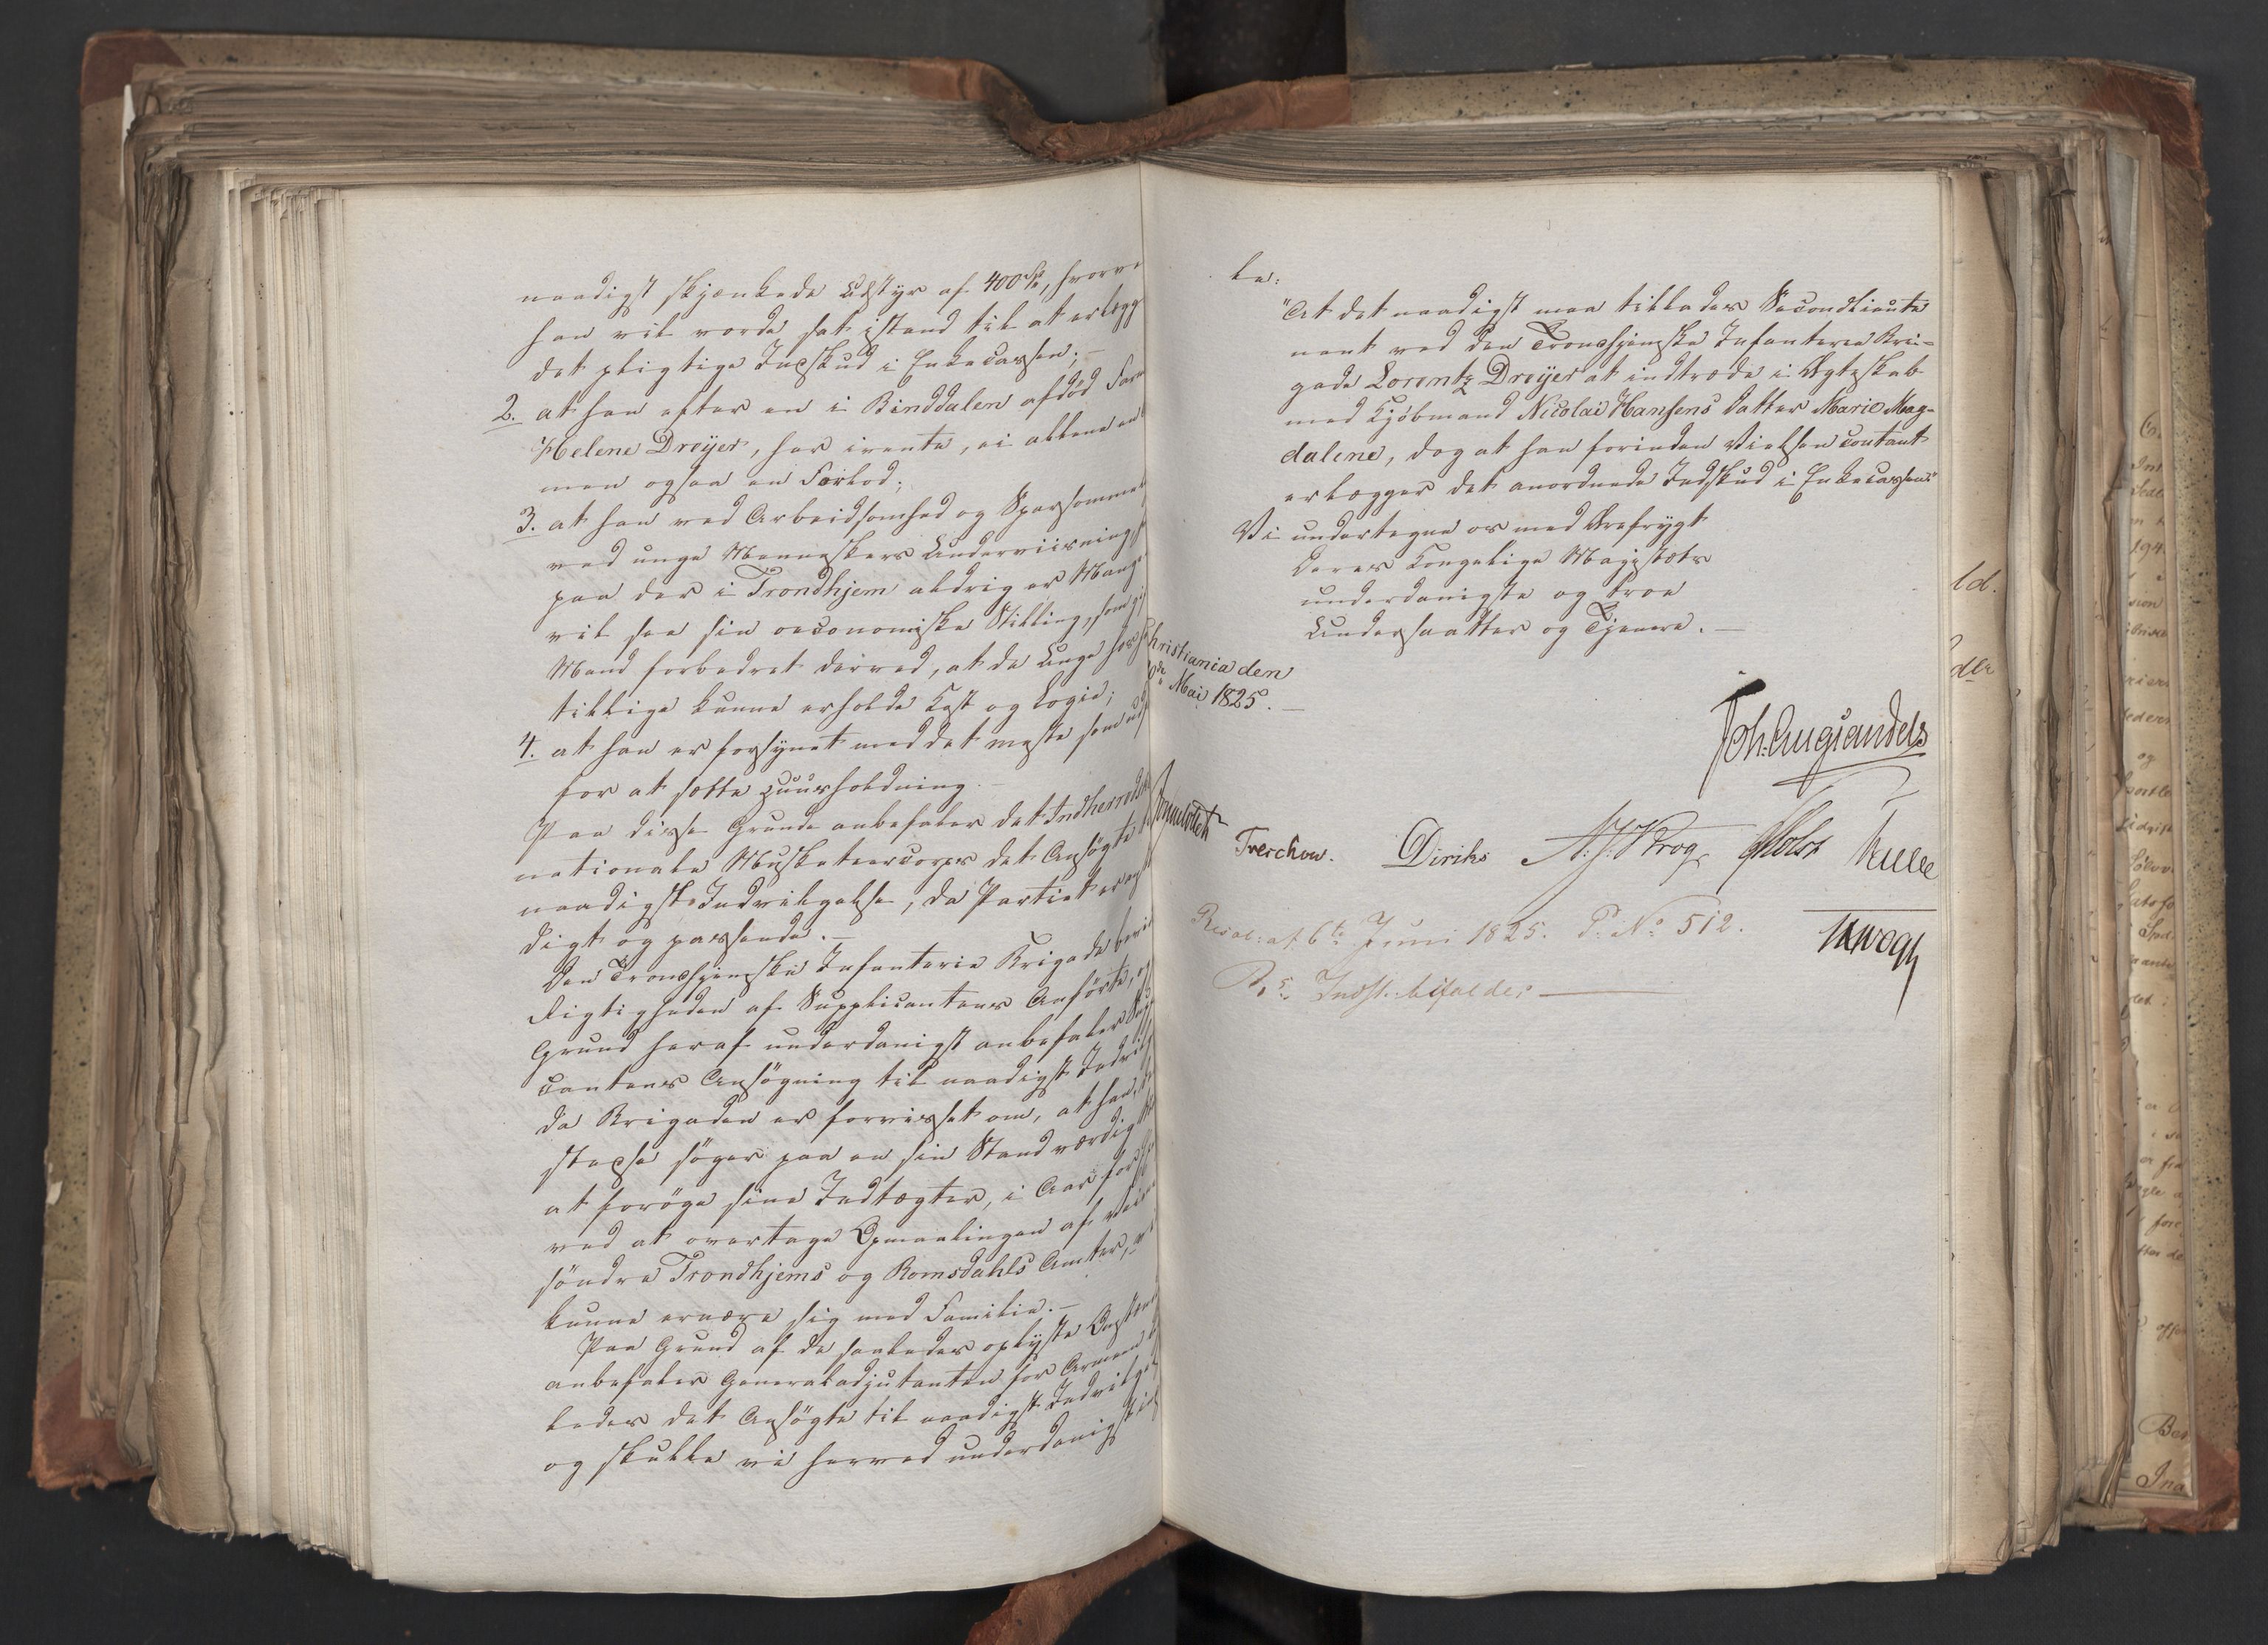 naadigst skjænkede Udstyr af 400 Spd, hvorve
han vil vorde sat istand til at erlægg
det pligtige Indskud i Enkecassen; —
2. at han efter en i Binddalen afdød Farm
Helene Dreyer, har ivente, ei allene en
men ogsaa en Farlod;
3. at han ved Arbeidsomhed og Sparsommel
ved unge Menneskers Underviisning,
paa der i Trondhjem aldrig er Mang
vil see sin oeconomiske Stilling, som gi
Mand forbedret derved, at de Unge hos h
tillige kunne erholde Kost og Logie;
4. at han er forsynet med det meste som ud
for at sætte Huusholdning. —
Paa disse Grunde anbefaler det Indherreds
nationale Musketeercorps det Ansøgte
naadigst Indvilgelse, da Partiet er
digt og passende. —
Den Trondhjemske Infanterie Brigade bevid
Rigtigheden af Supplicantens Anførte, og
Grund heraf underdanigst anbefaler Sup
cantens Ansøgning til naadigst Indvil
da Brigaden er forvisset om, at han,
stadse søger paa en sin Stand værdig
at forøge sine Indtægter, i Aar for
ved at overtage Opmaalingen af Veie
søndre Trondhjems og Romsdahls Amter,
kunne ernære sig med Familie. —
Paa Grund af de saaledes oplyste Omstæn
anbefaler Generaladjutanten for Armeen
ledes det Ansøgte til naadigst Indvilgel
og skulle vi herved underdanigst ind
le:
"At det naadigst maa tillades Secondlieute
nant ved den Trondhjemske Infanterie Bri=
gade Lorentz Dreyer at indtræde i Ægteskab
med Kjøbmand Nicolai Hansens Datter Marie Mag=
dalene, dog at han forinden Vielsen contant
erlægger det anordnede Indskud i Enkecassen"
Vi undertegne os med Ærefrygt
Deres Kongelige Majestæts
underdanigste og troe
Undersaatter og Tjenere. —
Christiania den
Mai 1825. —
Joh. Aug. Sandels
Sommerhielm
Treschow. Diriks A. J. Krog. Holst
Resol: af 6te Juni 1825. P. No 512.
Rs Indst. bifaldes —